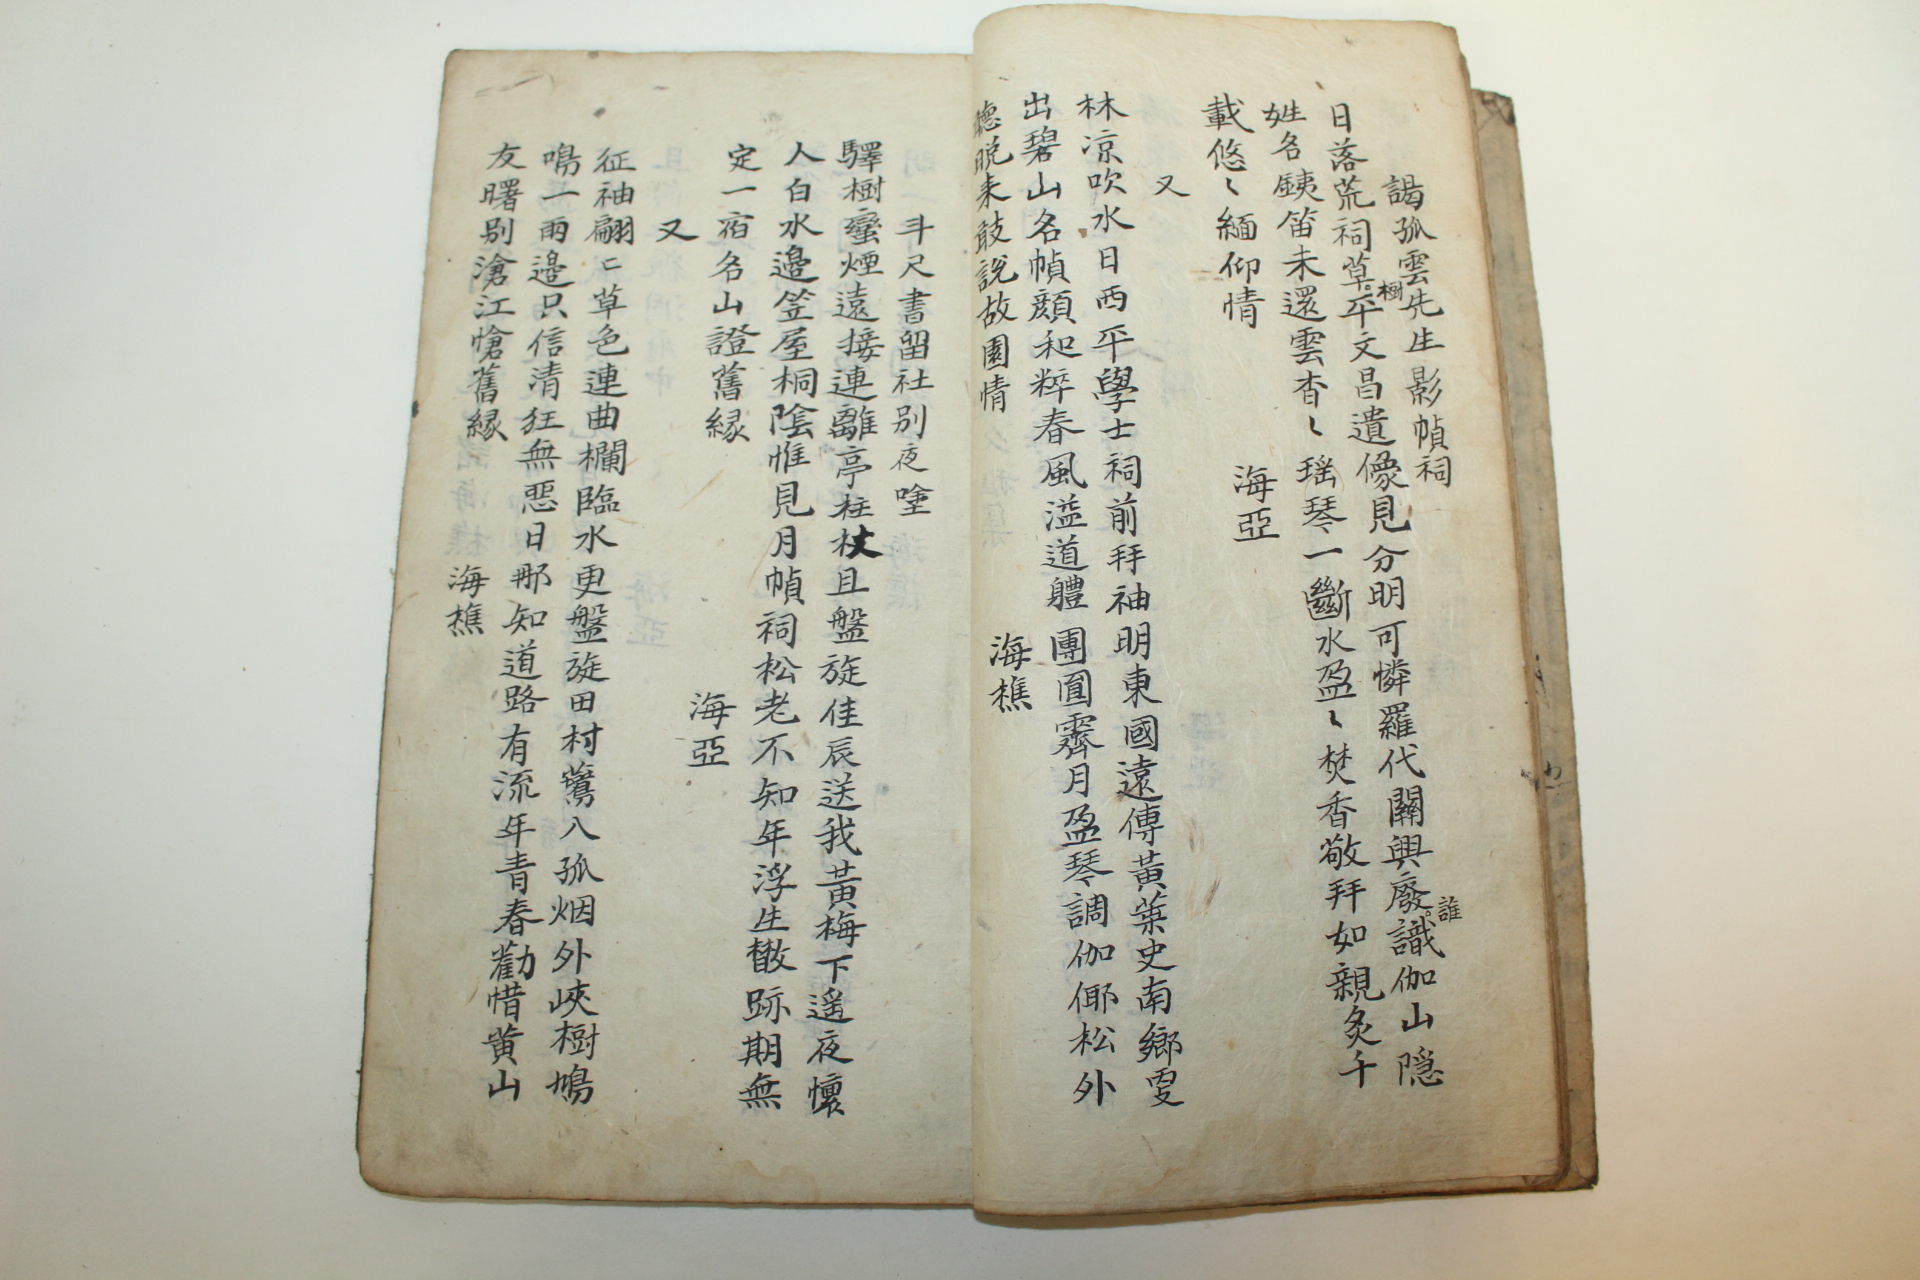 謁孤雲先生影幀祠
日落荒祠草樹平文昌遺像見分明可憐羅代關興廢誰識伽山隱
姓名鐵笛未還雲杳〻瑶琴一斷水盈〻焚香敬拜如親炙千
載悠〻緬仰情
海亞
又
林凉吹水日西平學士祠前拜袖明東國遠傳黃葉史南鄉
出碧山名幀顔和粹春風溢道軆團圓霽月盈琴調伽倻松外
聽晩来敲說故園情
海樵
斗尺書留社別夜唫
驛樹蠻煙遠接連離亭柱杖且盤旋佳辰送我黃梅下遥夜懷
人白水邊笠屋桐陰惟見月幀祠松老不知年浮生散跡期無
定一宿名山證舊緣
海亞
又
征袖翩〻草色連曲欄臨水更盤旋田村鶯入孤烟外峽樹鳩
鳴一雨邊只信清狂無惡日那知道路有流年青春勸惜黃山
友曙別滄江愴舊緣
海樵